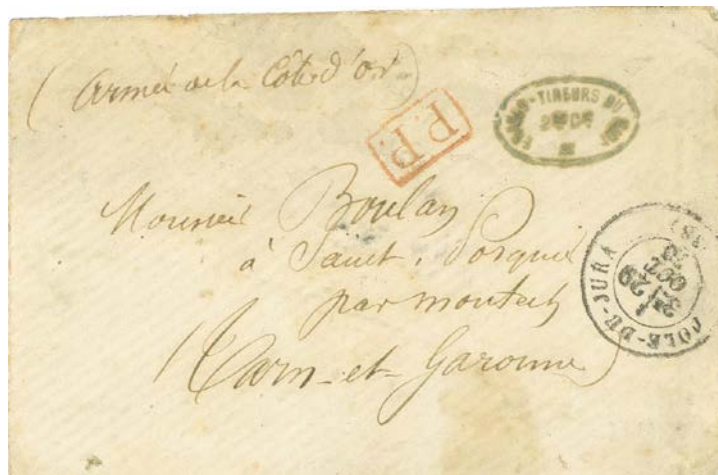 (Armée de la Côte d'or)
P.P.
-TIREURS DU
Monsieur Boulan
à Saint. Porquier
par montech
(Tarn-et-Garonne)
DOLE-DU-JURA
(38)
29
OCT
70